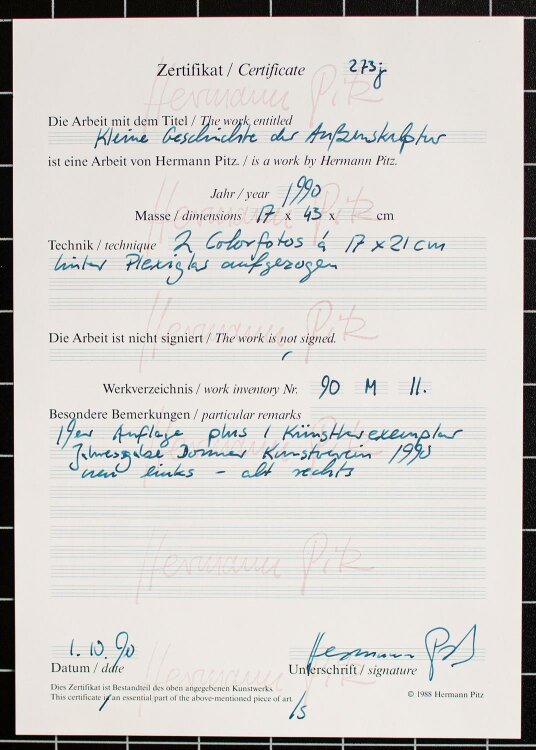 Zertifikat / Certificate 273j
Die Arbeit mit dem Titel / The work entitled
Kleine Geschichte der Außenskulptur
ist eine Arbeit von Hermann Pitz. / is a work by Hermann Pitz.
Jahr / year 1990
Masse / dimensions 17 x 43 x cm
Technik / technique 2 Colorfotos á 17 x 21 cm
hinter Plexiglas aufgezogen
Die Arbeit ist nicht signiert / The work is not signed.
Werkverzeichnis / work inventory Nr. 90 M 11.
Besondere Bemerkungen / particular remarks
19er Auflage plus 1 Künstlerexemplar
Jahresgabe Bonner Kunstverein 1990
neu links - alt rechts
1. 10. 90 Hermann Pitz
Datum / date Unterschrift / signature
Dies Zertifikat ist Bestandteil des oben angegebenen Kunstwerks.
This certificate is an essential part of the above-mentioned piece of art.
© 1988 Hermann Pitz
Hermann Pitz
Hermann Pitz
Hermann Pitz
Hermann Pitz
Hermann Pitz
Hermann Pitz